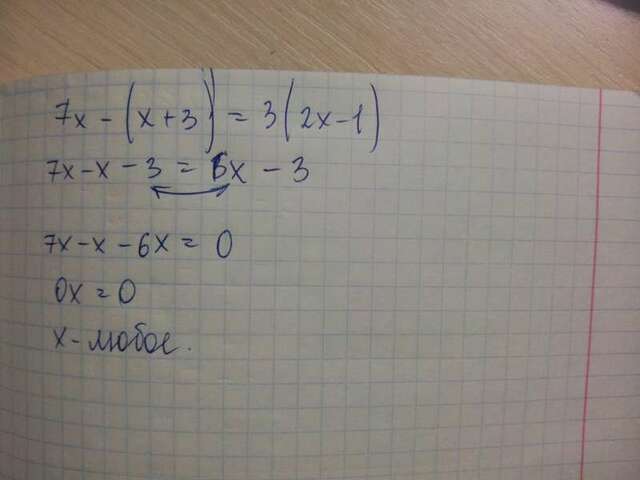 7x - (x+3) = 3(2x-1)
7x-x-3 = 6x - 3
7x-x-6x = 0
0x = 0
x-любое.